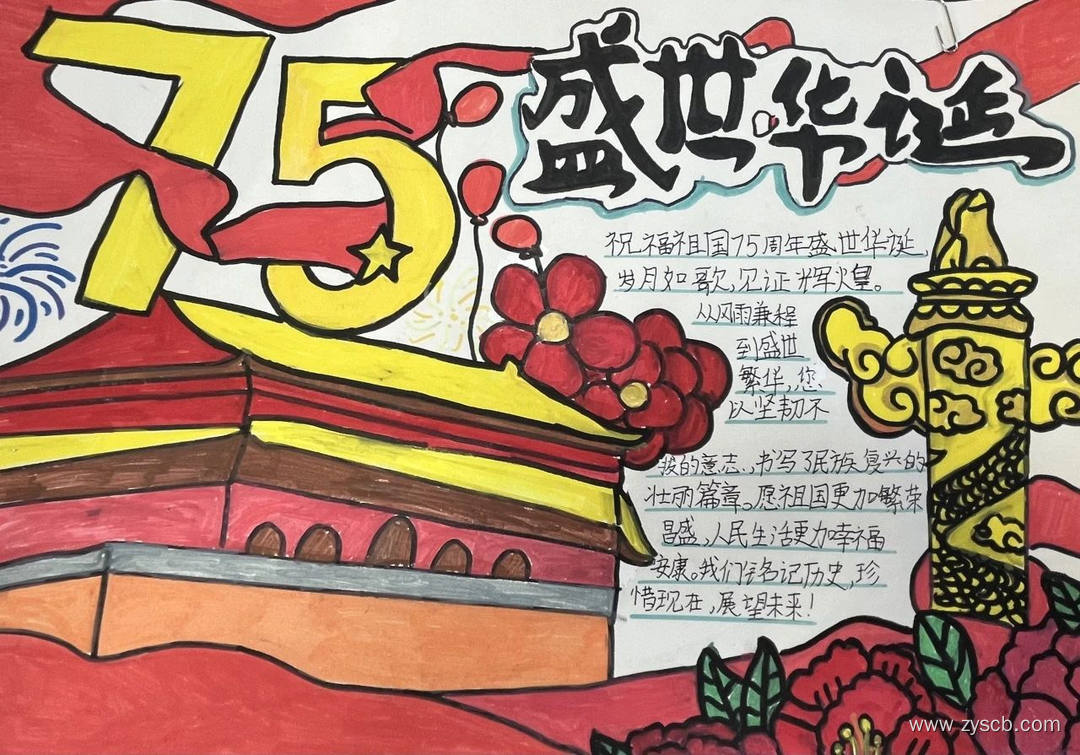 75
盛世华诞
祝福祖国75周年盛世华诞,
岁月如歌,见证辉煌。
从风雨兼程
到盛世
繁华,您
以坚韧不
拔的意志,书写了民族复兴的
壮丽篇章。愿祖国更加繁荣
昌盛,人民生活更加幸福
安康。我们铭记历史,珍
惜现在,展望未来!
www.zyscb.com